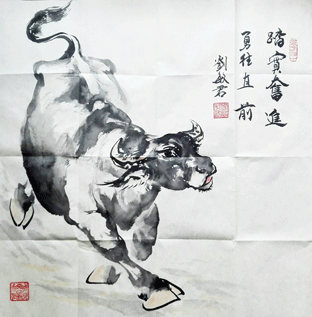 踏實奮進
勇往直前
劉敏君